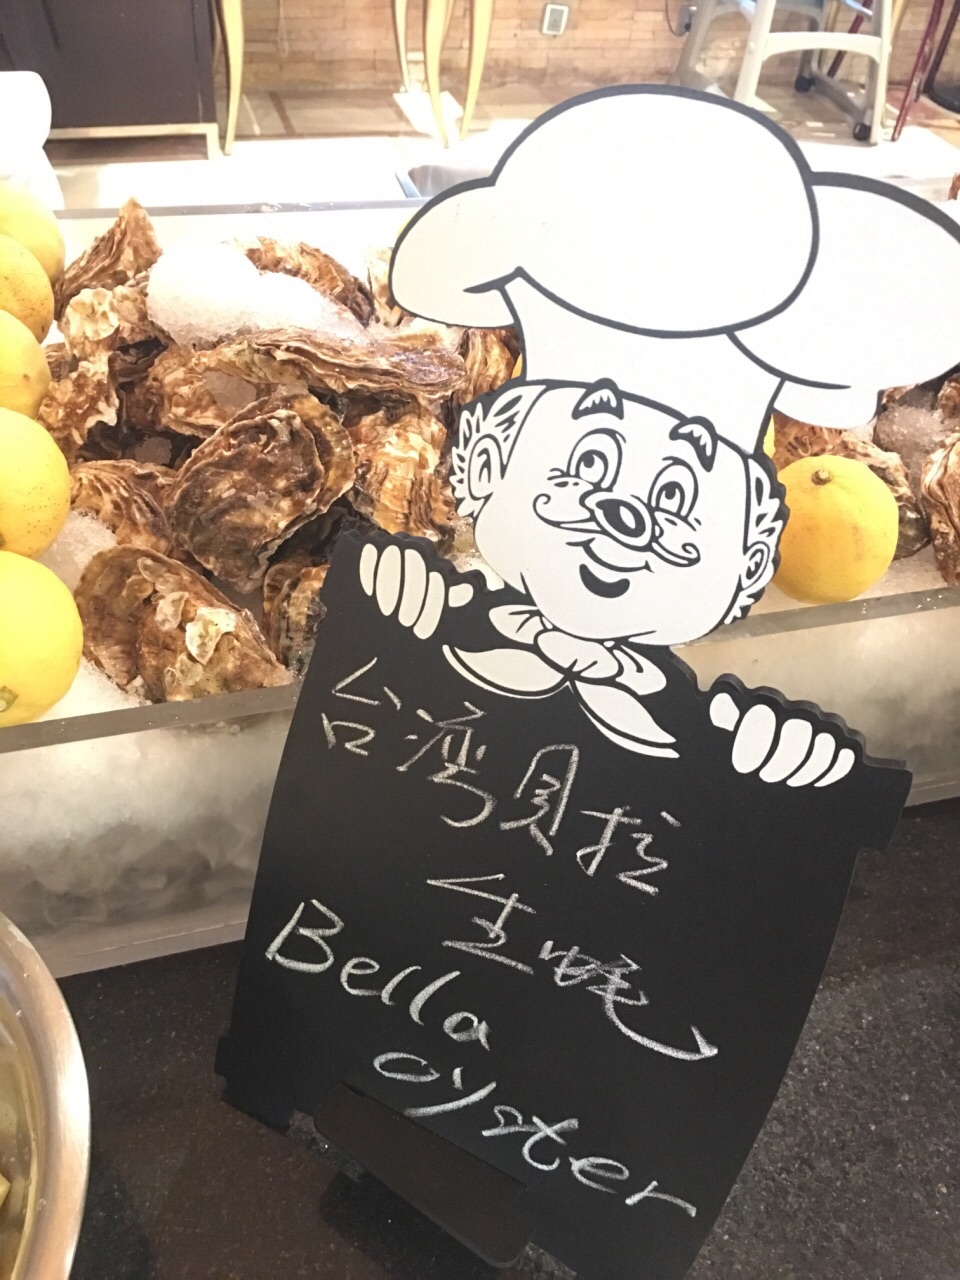 台湾贝拉
生蚝
Bella
oyster